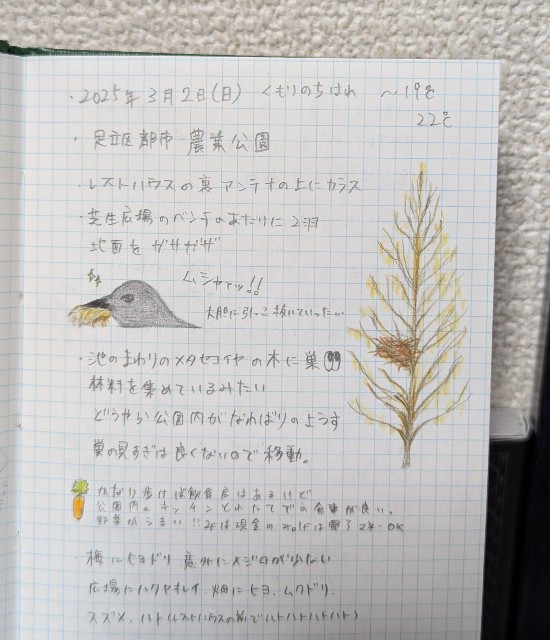 ・2025年3月2日(日) くもりのちはれ ～19℃
22℃
・足立区都市農業公園
・レストハウスの裏アンテナの上にカラス
・芝生広場のベンチのあたりに2羽
地面をガサガサ
ムシャァッ!!
大胆に引っこ抜いていった…
・池のまわりのメタセコイヤの木に巣
材料を集めているみたい
どうやら公園内がなわばりのようす
巣の見すぎは良くないので移動。
かなり歩けば飲食店はあるけど
公園内のキッチンとれたてでの食事が良い。
野菜がうまい!! 2Fは現金のみ 1Fは電子マネーOK
梅にヒヨドリ 意外にメジロが少ない
広場にハクセキレイ、畑にヒヨ、ムクドリ、
スズメ、ハト(レストハウスの前でハトハトハトハト)